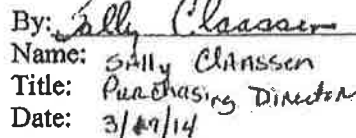 By: Sally Claassen
Name: Sally Claassen
Title: Purchasing Director
Date: 3/27/14